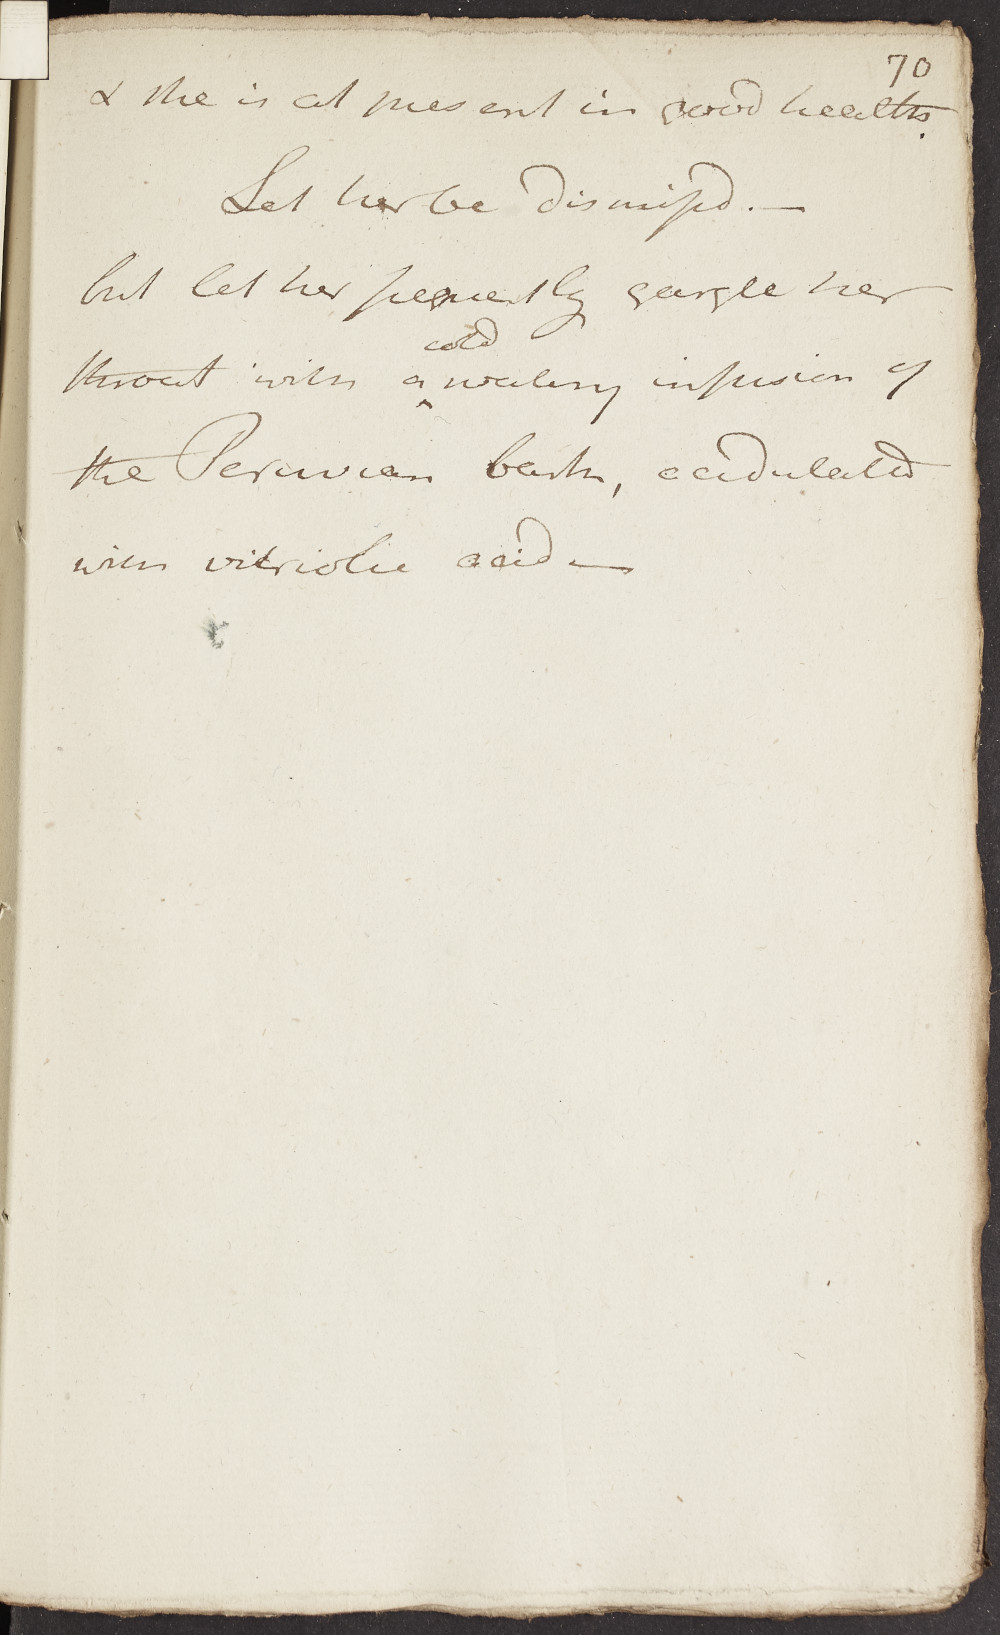 70
& she is at present in good health.
Let her be dismissd. —
but let her frequently gargle her
cold
throat with a ‸ watery infusion of
the Peruvian bark, acidulated
with vitriolic acid —